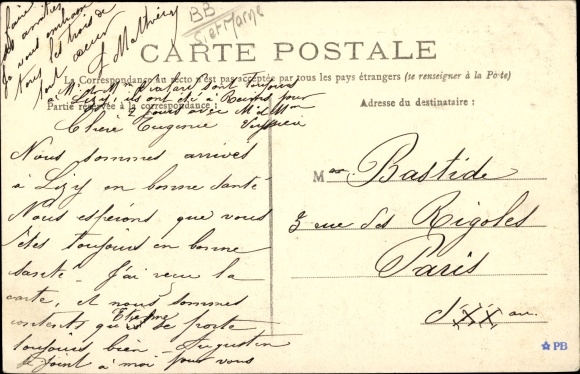 BB
CARTE POSTALE
La Correspondance au recto n'est pas acceptée par tous les pays étrangers (se renseigner à la Poste)
Partie réservée à la correspondance :
Adresse du destinataire :
faire
nos amitiés
vous embrasse
tous les trois de
tout cœur
J Mathieu
sont toujours
à Lizy, ils ont été à Reims pour
2 jours avec Mr et Mme
Chère Eugénie
Nous sommes arrivés
à Lizy en bonne santé
Nous espérons que vous
êtes toujours en bonne
santé J'ai reçu la
carte, et nous sommes
contents qu'Etienne se porte
toujours bien Augustin
se joint à moi pour vous
Mme Bastide
3 rue des Rigoles
Paris
XX arr.
PB